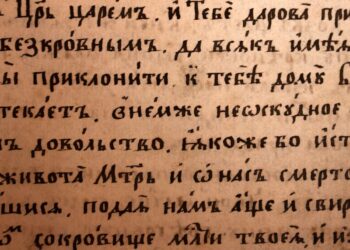 Цр҃ь царе́мъ, и҆ Тебѐ дарова̀ при
безкро́внымъ, да всѧ́къ и҆мѣ́ѧ
ы̀ приклони́ти к̾ тебѣ̀ до́мꙋ
текае́тъ, в̾не́мже неѡскꙋ́дное
ъ дово́льство, ꙗ҆́коже бо и҆ ист
живота̀ Мт҃рь и҆ ѿ на́съ сме́рто
шисѧ, пода́й на́мъ а҆́ще и҆ свир
сокро́вище мл҃ти твоеѧ̀, и҆